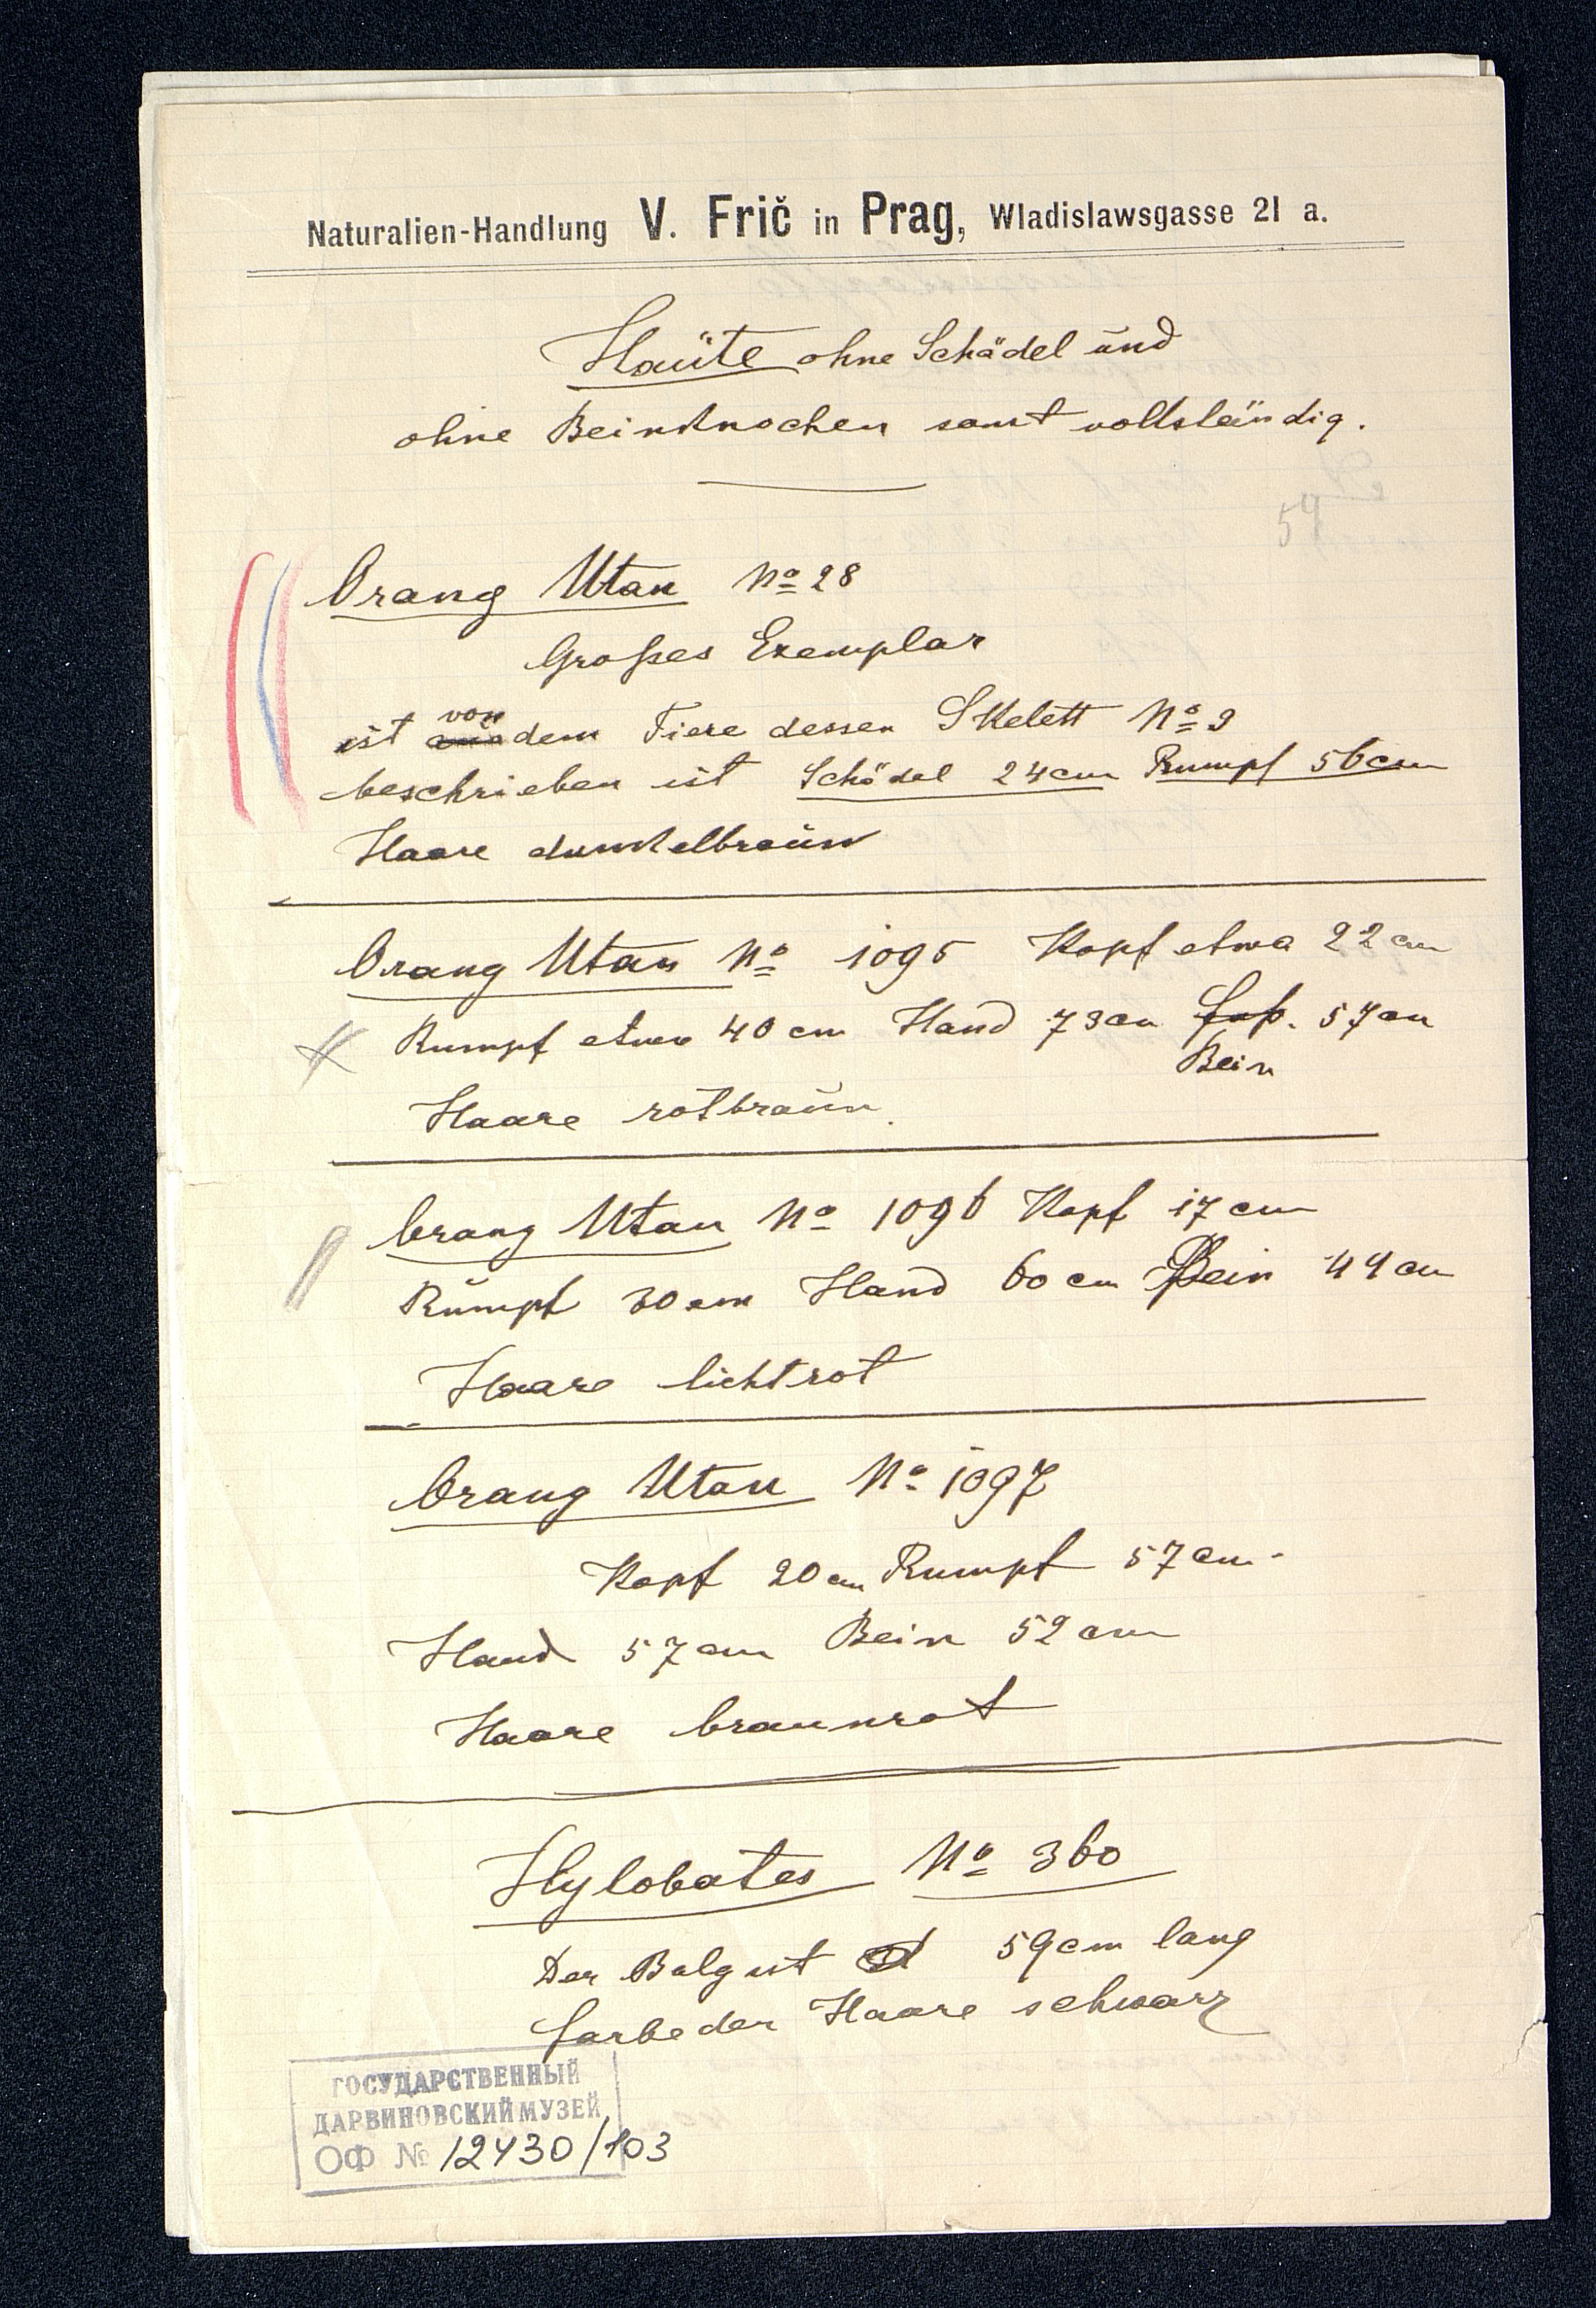 Naturalien-Handlung V. Frič in Prag, Wladislawsgasse 21 a.
Haüte ohne Schädel und
ohne Beinknochen sonst vollständig.
59
Orang Utan No 28
Großes Exemplar
von
ist dem Tiere dessen Skelett No 2
beschrieben ist Schädel 24cm Rumpf 56cm
Haare dunkelbraun
Orang Utan No 1095 Kopf etwa 22 cm
Rumpf etwa 40 cm Hand 73cm Fuß. 57cm
Bein
Haare rotbraun.
Orang Utan No 1096 Kopf 17 cm
Rumpf 30 cm Hand 60 cm Bein 49 cm
Haare lichtrot
Orang Utan No 1097
Kopf 20 cm Rumpf 57 cm
Hand 57 cm Bein 52 cm
Haare braunrot
Hylobates No 360
Der Balg ist 59cm lang
Farbe der Haare schwarz
ГОСУДАРСТВЕННЫЙ
ДАРВИНОВСКИЙ МУЗЕЙ
ОФ № 12430/103